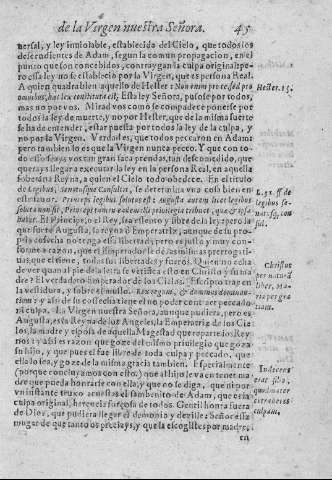 de la Virgen nuestra Señora. 45
uersal, y ley inuiolable, establecida del Cielo, que todos los
descendientes de Adam, segun la comun propagacion, en el
punto que son concebidos, contraygan la culpa original: pe-
ro essa ley no se establecio por la Virgen, que es persona Real.
A quien quadra bien aquello de Hester: Non enim pro te, sed pro
omnibus, hæc lex constituta est. Esta ley Señora, pusose por todos,
mas no por vos. Mirad vos como se compadece ponerse por
todos la ley de muerte, y no por Hester, que de la misma suerte
se ha de entender, estar puesta por todos la ley de la culpa, y
no por la Virgen. Verdad es, que todos pecaron en Adam:
pero tambien lo es que la Virgen nunca pecco. Y que con to-
do esso
que
ray a llegara a executar la ley en la persona Real, en aquella
soberana Reyna, a quien el Cielo todo obedece. En el titulo
de Legibus, Senatusque Consultis, se determina vna cosa bien en
este fauor. Princeps legibus solutus est: Augusta autem licet legibus
soluta non sit, Principes tamen eadem illi priuilegia tribuunt, quæ & ipsi
habent. El Principe, o el Rey, es essento y libre de la ley: pero la
que fuere Augusta, la reyna o Emperatriz, aunque de su pro-
pia cosecha no tenga essa libertad; pero es justo y muy con-
forme a razon, que el Emperador le dè las mismas prerrogati-
uas que el tiene, todas sus libertades y fueros. Quien no echa
de ver quan al pie de la letra se verifica esto en Christo y su ma-
dre? El verdadero Emperador de los Cielos
la vestidura, y sobre el muslo: Rex regum, & Dominus dominan-
tium: y assi de su cosecha tiene el no poder contraer peccado,
ni culpa. La Virgen nuestra Señora, aunque pudiera, pero es
Augusta, es la Reyna de los Angeles, la Emperatriz de los Cie-
los, la madre y esposa de aquella Magestad que reparte los Rey-
nos: y assi es razon que goze del mismo priuilegio que goza
su hijo, y que pues el fue libre de toda culpa y peccado, que
ella lo sea, y goze de la misma gracia tambien. Especialmente
(porque concluyamos con esto) que al hijo le va en tener ma-
dre que pueda honrarse con ella, y que no se diga, que ni por
vn instante truxo acuestas el sambenito de Adam, que es la
culpa original, herencia forçosa de todos. Gentil honra fuera
de Dios, que pudiera llegar el demonio y dezille: Señor essa
muger de que tanto os preciays, y que la escogistes por madre,
en
Hester. 15.
L. 31. ff. de
legibus se-
natusq; con
sul.
Christus
per naturã
liber, Ma-
ria per gra
tiam.
Indecens
erat filio,
quod mater
contraheret
culpam.